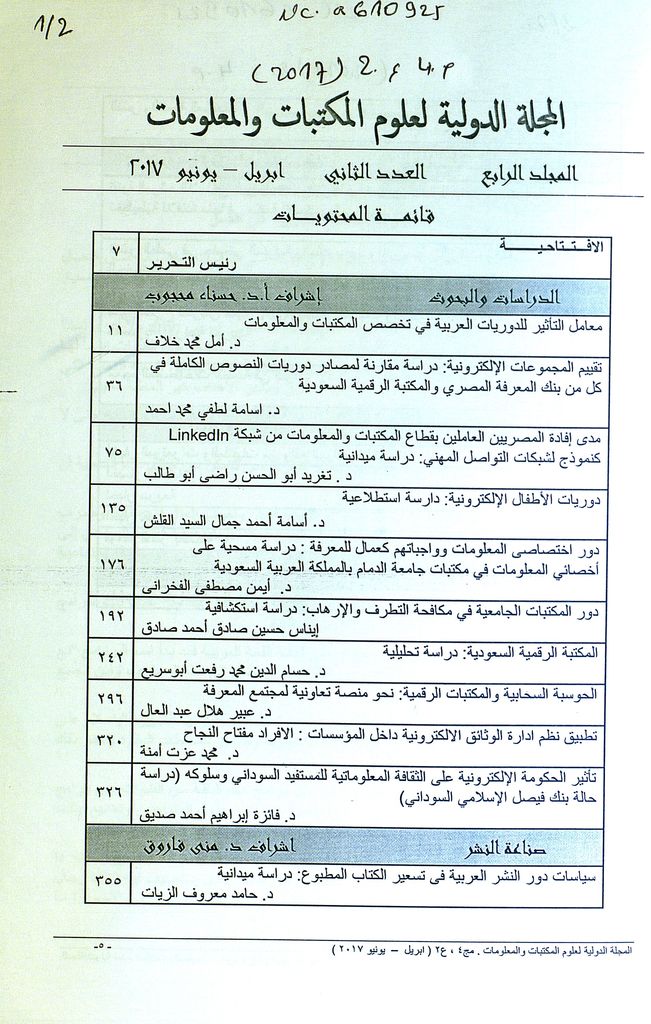 1/2
NC. a610925
م.4 ع.2 (2017)
المجلة الدولية لعلوم المكتبات والمعلومات
المجلد الرابع العدد الثاني ابريل – يونيو ٢٠١٧
قائمة المحتويات
الافتتاحية
رئيس التحرير ٧
الدراسات والبحوث إشراف أ.د. حسناء محجوب
معامل التأثير للدوريات العربية في تخصص المكتبات والمعلومات
د. أمل محمد خلاف ١١
تقييم المجموعات الإلكترونية: دراسة مقارنة لمصادر دوريات النصوص الكاملة في
كل من بنك المعرفة المصري والمكتبة الرقمية السعودية
د. اسامة لطفي محمد احمد ٣٦
مدى إفادة المصريين العاملين بقطاع المكتبات والمعلومات من شبكة LinkedIn
كنموذج لشبكات التواصل المهني: دراسة ميدانية
د. تغريد أبو الحسن راضى أبو طالب ٧٥
دوريات الأطفال الإلكترونية: دارسة استطلاعية
د. أسامة أحمد جمال السيد القلش ١٣٥
دور اختصاصى المعلومات وواجباتهم كعمال للمعرفة : دراسة مسحية على
أخصائي المعلومات في مكتبات جامعة الدمام بالمملكة العربية السعودية
د. أيمن مصطفى الفخرانى ١٧٦
دور المكتبات الجامعية في مكافحة التطرف والإرهاب: دراسة استكشافية
إيناس حسين صادق أحمد صادق ١٩٢
المكتبة الرقمية السعودية: دراسة تحليلية
د. حسام الدين محمد رفعت أبوسريع ٢٤٢
الحوسبة السحابية والمكتبات الرقمية: نحو منصة تعاونية لمجتمع المعرفة
د. عبير هلال عبد العال ٢٩٦
تطبيق نظم ادارة الوثائق الالكترونية داخل المؤسسات : الافراد مفتاح النجاح
د. محمد عزت أمنة ٣٢٠
تأثير الحكومة الإلكترونية على الثقافة المعلوماتية للمستفيد السوداني وسلوكه (دراسة
حالة بنك فيصل الإسلامي السوداني)
د. فائزة إبراهيم أحمد صديق ٣٢٦
صناعة النشر اشراف د. منى فاروق
سياسات دور النشر العربية فى تسعير الكتاب المطبوع: دراسة ميدانية
د. حامد معروف الزيات ٣٥٥
المجلة الدولية لعلوم المكتبات والمعلومات . مج٤ ، ع٢ ( ابريل – يونيو ٢٠١٧ ) -٥-